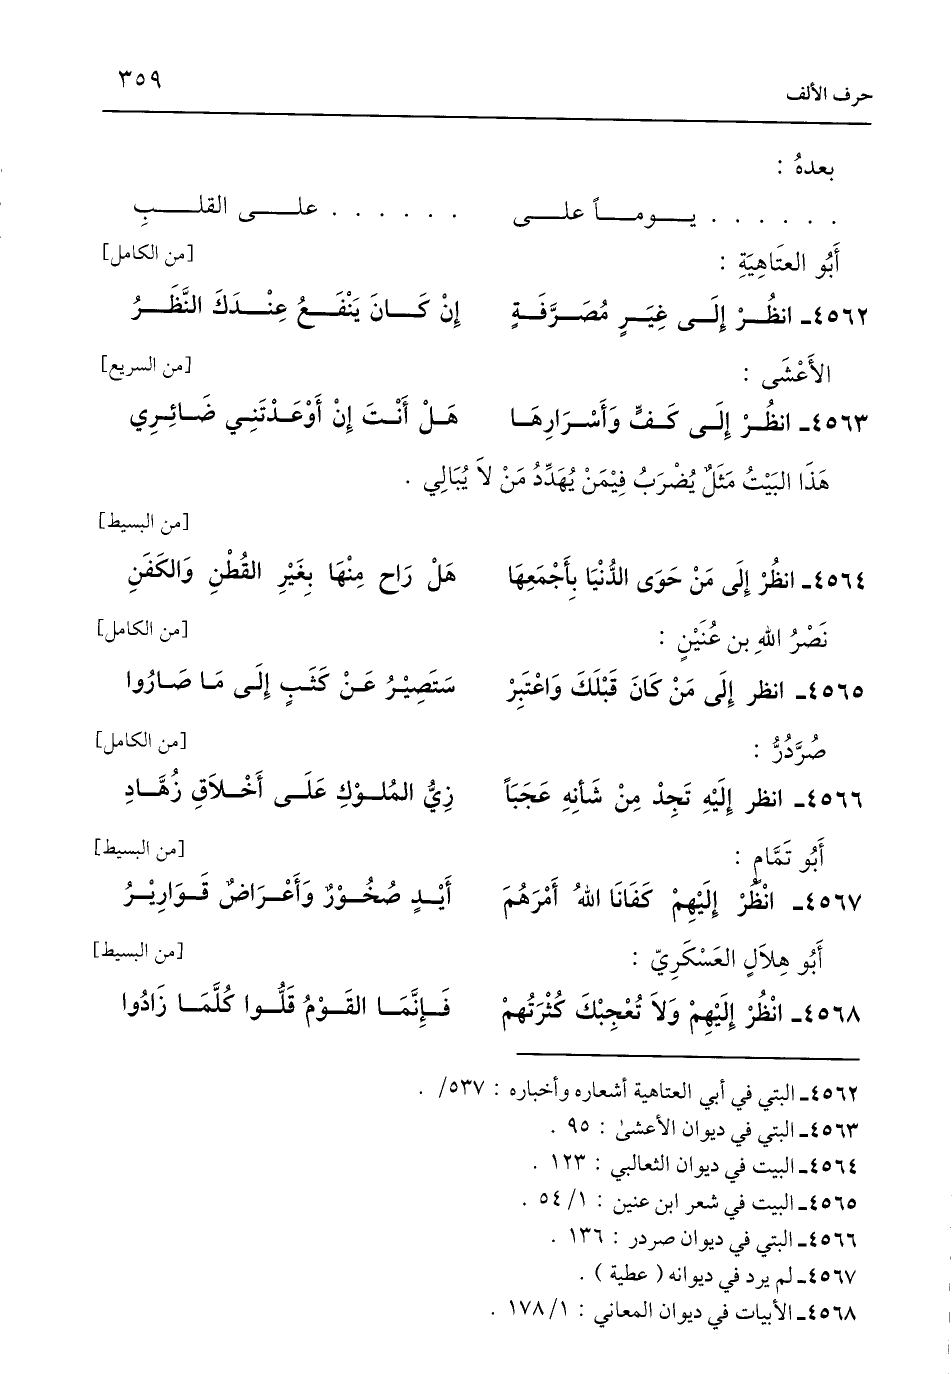 حرف الألف ٣٥٩
بعدهُ :
. . . . . . يـومـاً علـى . . . . . . علـى القلـبِ
أَبُو العتَاهِيَةِ : [من الكامل]
٤٥٦٢ـ انظُـرْ إِلَـى غِيَـرٍ مُصَـرَّفَـةٍ إِنْ كَـانَ يَنْفَـعُ عِنْـدَكَ النَّظَـرُ
الأَعْشَى : [من السريع]
٤٥٦٣ـ انظُـرْ إِلَـى كَـفٍّ وَأَسْـرَارِهَـا هَـلْ أَنْـتَ إِنْ أَوْعَـدْتَنِـي ضَـائِـرِي
هَذَا البَيْتُ مَثَلٌ يُضْرَبُ فِيْمَنْ يُهَدِّدُ مَنْ لاَ يُبَالِي .
[من البسيط]
٤٥٦٤ـ انظُرْ إِلَى مَنْ حَوَى الدُّنْيَا بِأَجْمَعِهَا هَلْ رَاح مِنْهَا بِغَيْرِ القُطْنِ وَالكَفَنِ
نَصْرُ اللهِ بن عُنَيْنٍ : [من الكامل]
٤٥٦٥ـ انظر إِلَى مَنْ كَانَ قَبْلَكَ وَاعْتَبِرْ سَتَصِيْـرُ عَـنْ كَثَـبٍ إِلَى مَـا صَـارُوا
صُرَّدُرُّ : [من الكامل]
٤٥٦٦ـ انظر إِلَيْهِ تَجِدْ مِنْ شَأنِهِ عَجَبَاً زِيُّ المُلُـوْكِ عَلَـى أَخْـلاَقِ زُهَّـادِ
أَبُو تَمَّامٍ : [من البسيط]
٤٥٦٧ـ انْظُرْ إِلَيْهِمْ كَفَانَا اللهُ أَمْرَهُمُ أَيْـدٍ صُخُـوْرٌ وَأَعْـرَاضٌ قَـوَارِيْـرُ
أَبُو هِلاَلٍ العَسْكَرِيّ : [من البسيط]
٤٥٦٨ـ انْظُرْ إِلَيْهِمْ وَلاَ تُعْجِبْكَ كُثْرَتُهُمْ فَـإِنَّمَـا القَـوْمُ قَلُّـوا كُلَّمَـا زَادُوا
٤٥٦٢ـ البتي في أبي العتاهية أشعاره وأخباره : ٥٣٧/ .
٤٥٦٣ـ البتي في ديوان الأعشىٰ : ٩٥ .
٤٥٦٤ـ البيت في ديوان الثعالبي : ١٢٣ .
٤٥٦٥ـ البيت في شعر ابن عنين : ١/ ٥٤ .
٤٥٦٦ـ البتي في ديوان صردر : ١٣٦ .
٤٥٦٧ـ لم يرد في ديوانه ( عطية ) .
٤٥٦٨ـ الأبيات في ديوان المعاني : ١/ ١٧٨ .